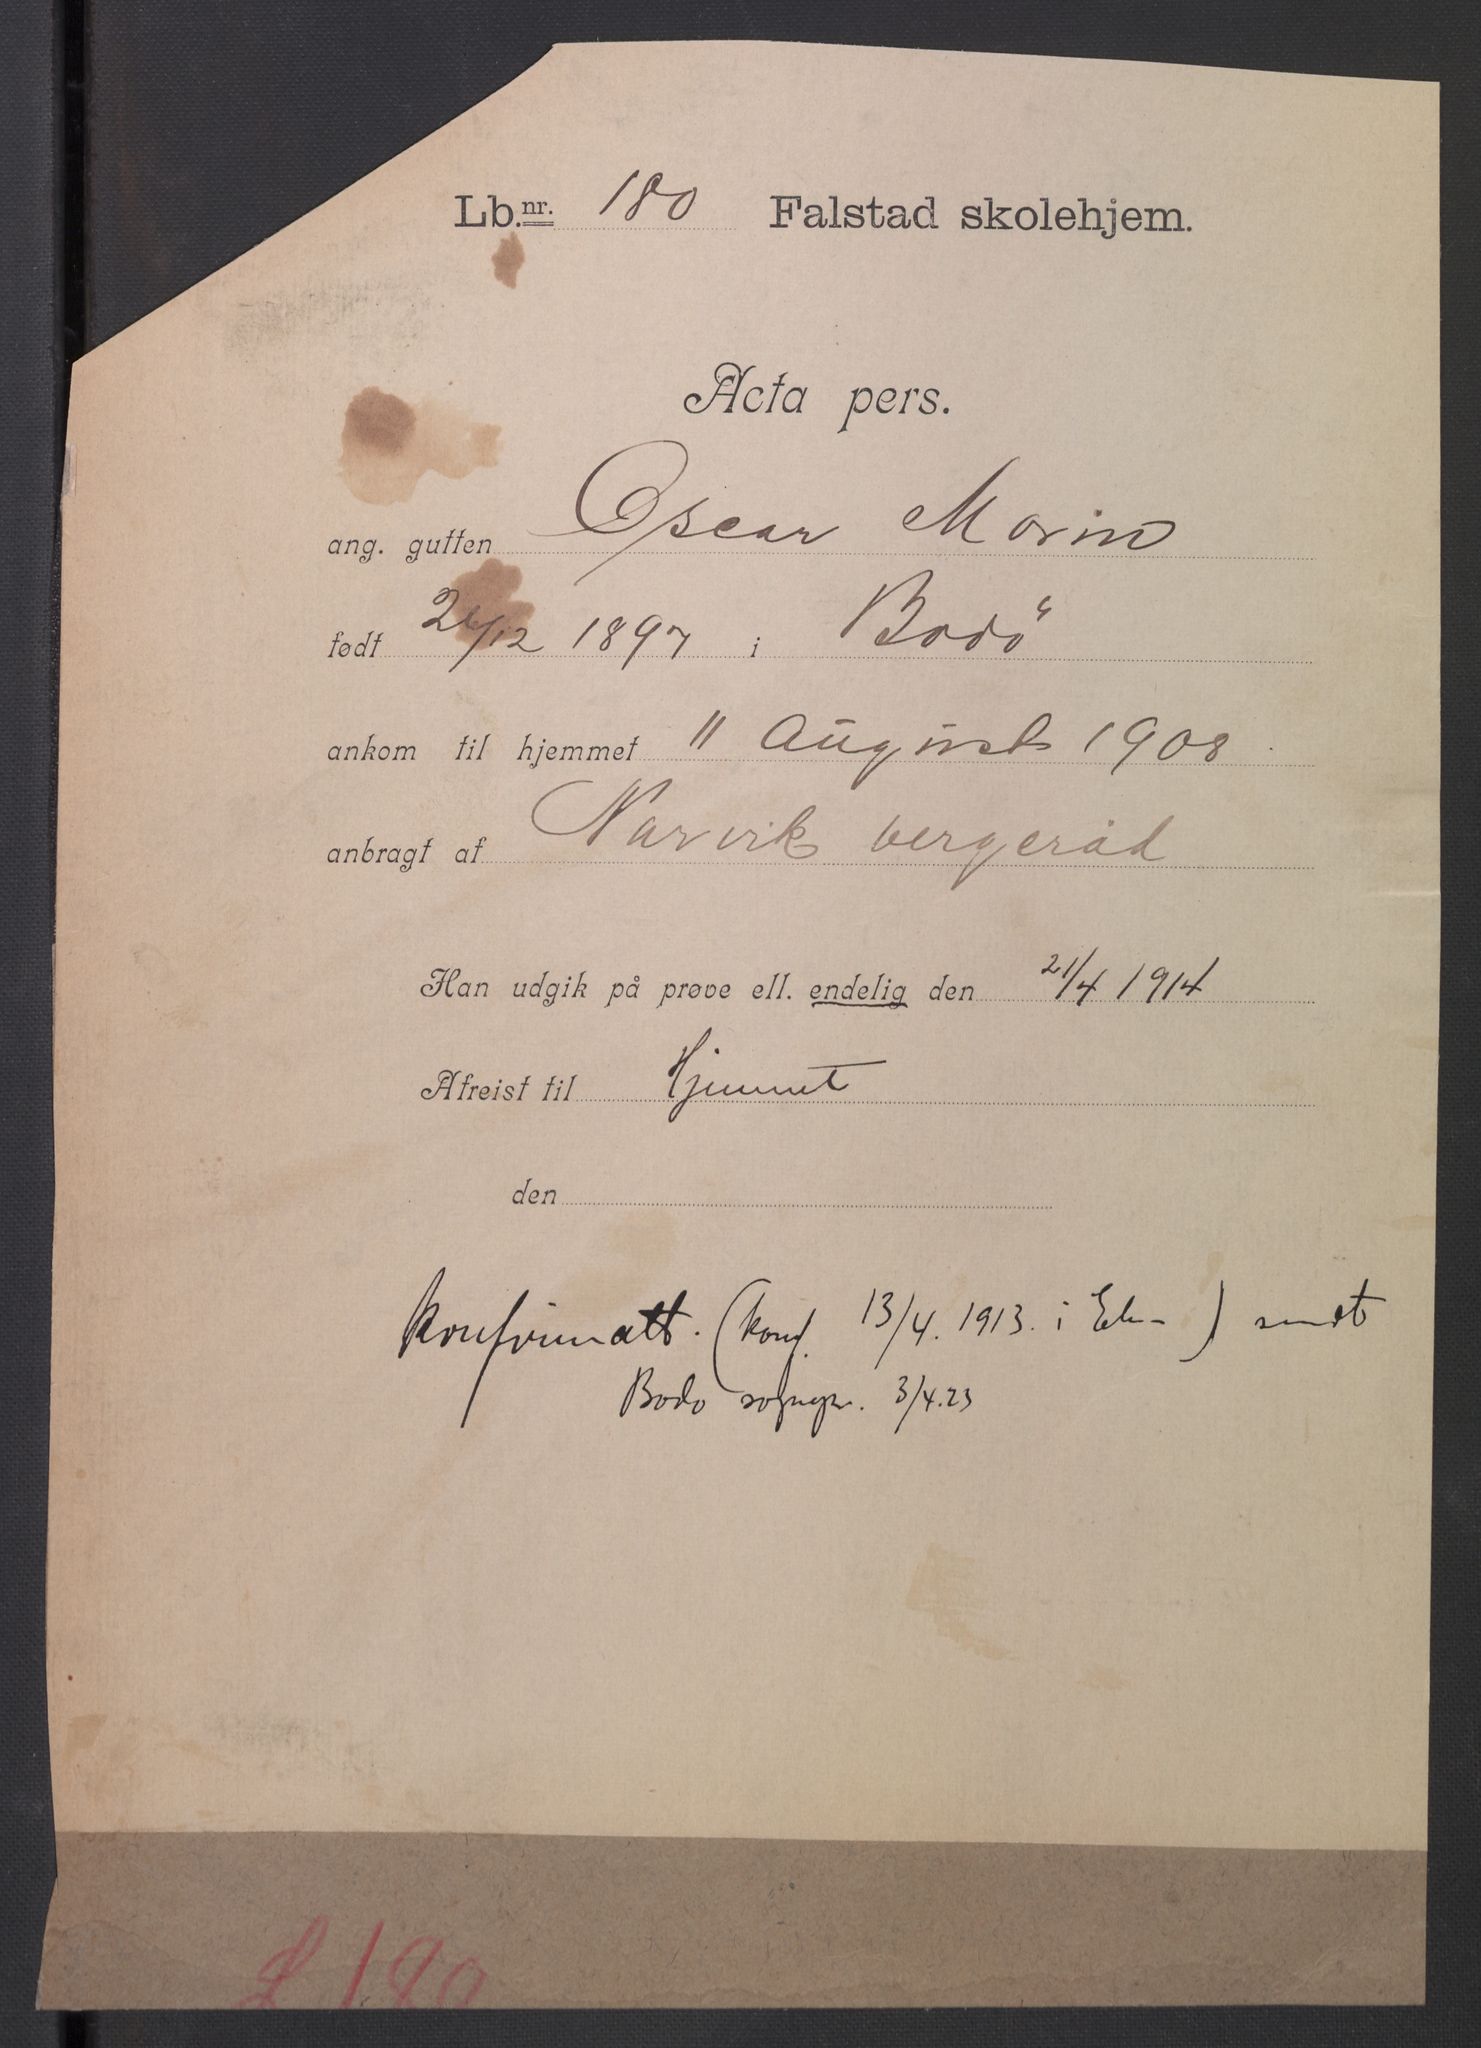 Lb.nr. 180 Falstad skolehjem.
Acta pers.
ang. gutten Oscar Morino
født 26/12 1897 i Bodö
ankom til hjemmet 11 August 1908
anbragt af Narvik vergeråd
Han udgik på prøve ell. endelig den 21/4 1914
Afreist til Hjemmet
den
konfirmatt. (konf. 13/4. 1913. i ) sendt
Bodo sognepr. 3/4.23
L 180